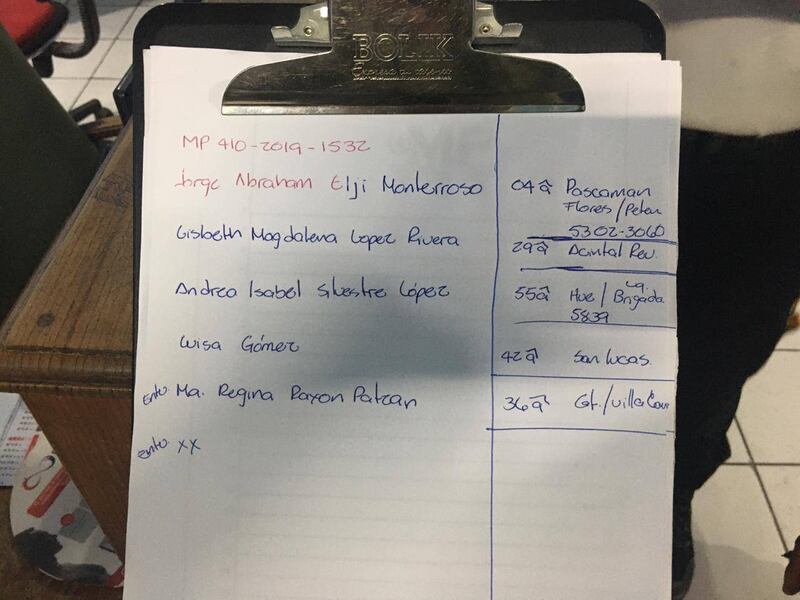 BOLIK
MP 410-2019-1532
Jorge Abraham Elji Monterroso
04â
Flores/Peten
5302-3060
Lisbeth Magdalena Lopez Rivera
29â
Rev.
Andrea Isabel Silvestre López
55â Hue/Brigada
5839
Luisa Gómez
42â San Lucas.
Ento. Ma. Regina Raxon Patzan
36â
ento. XX